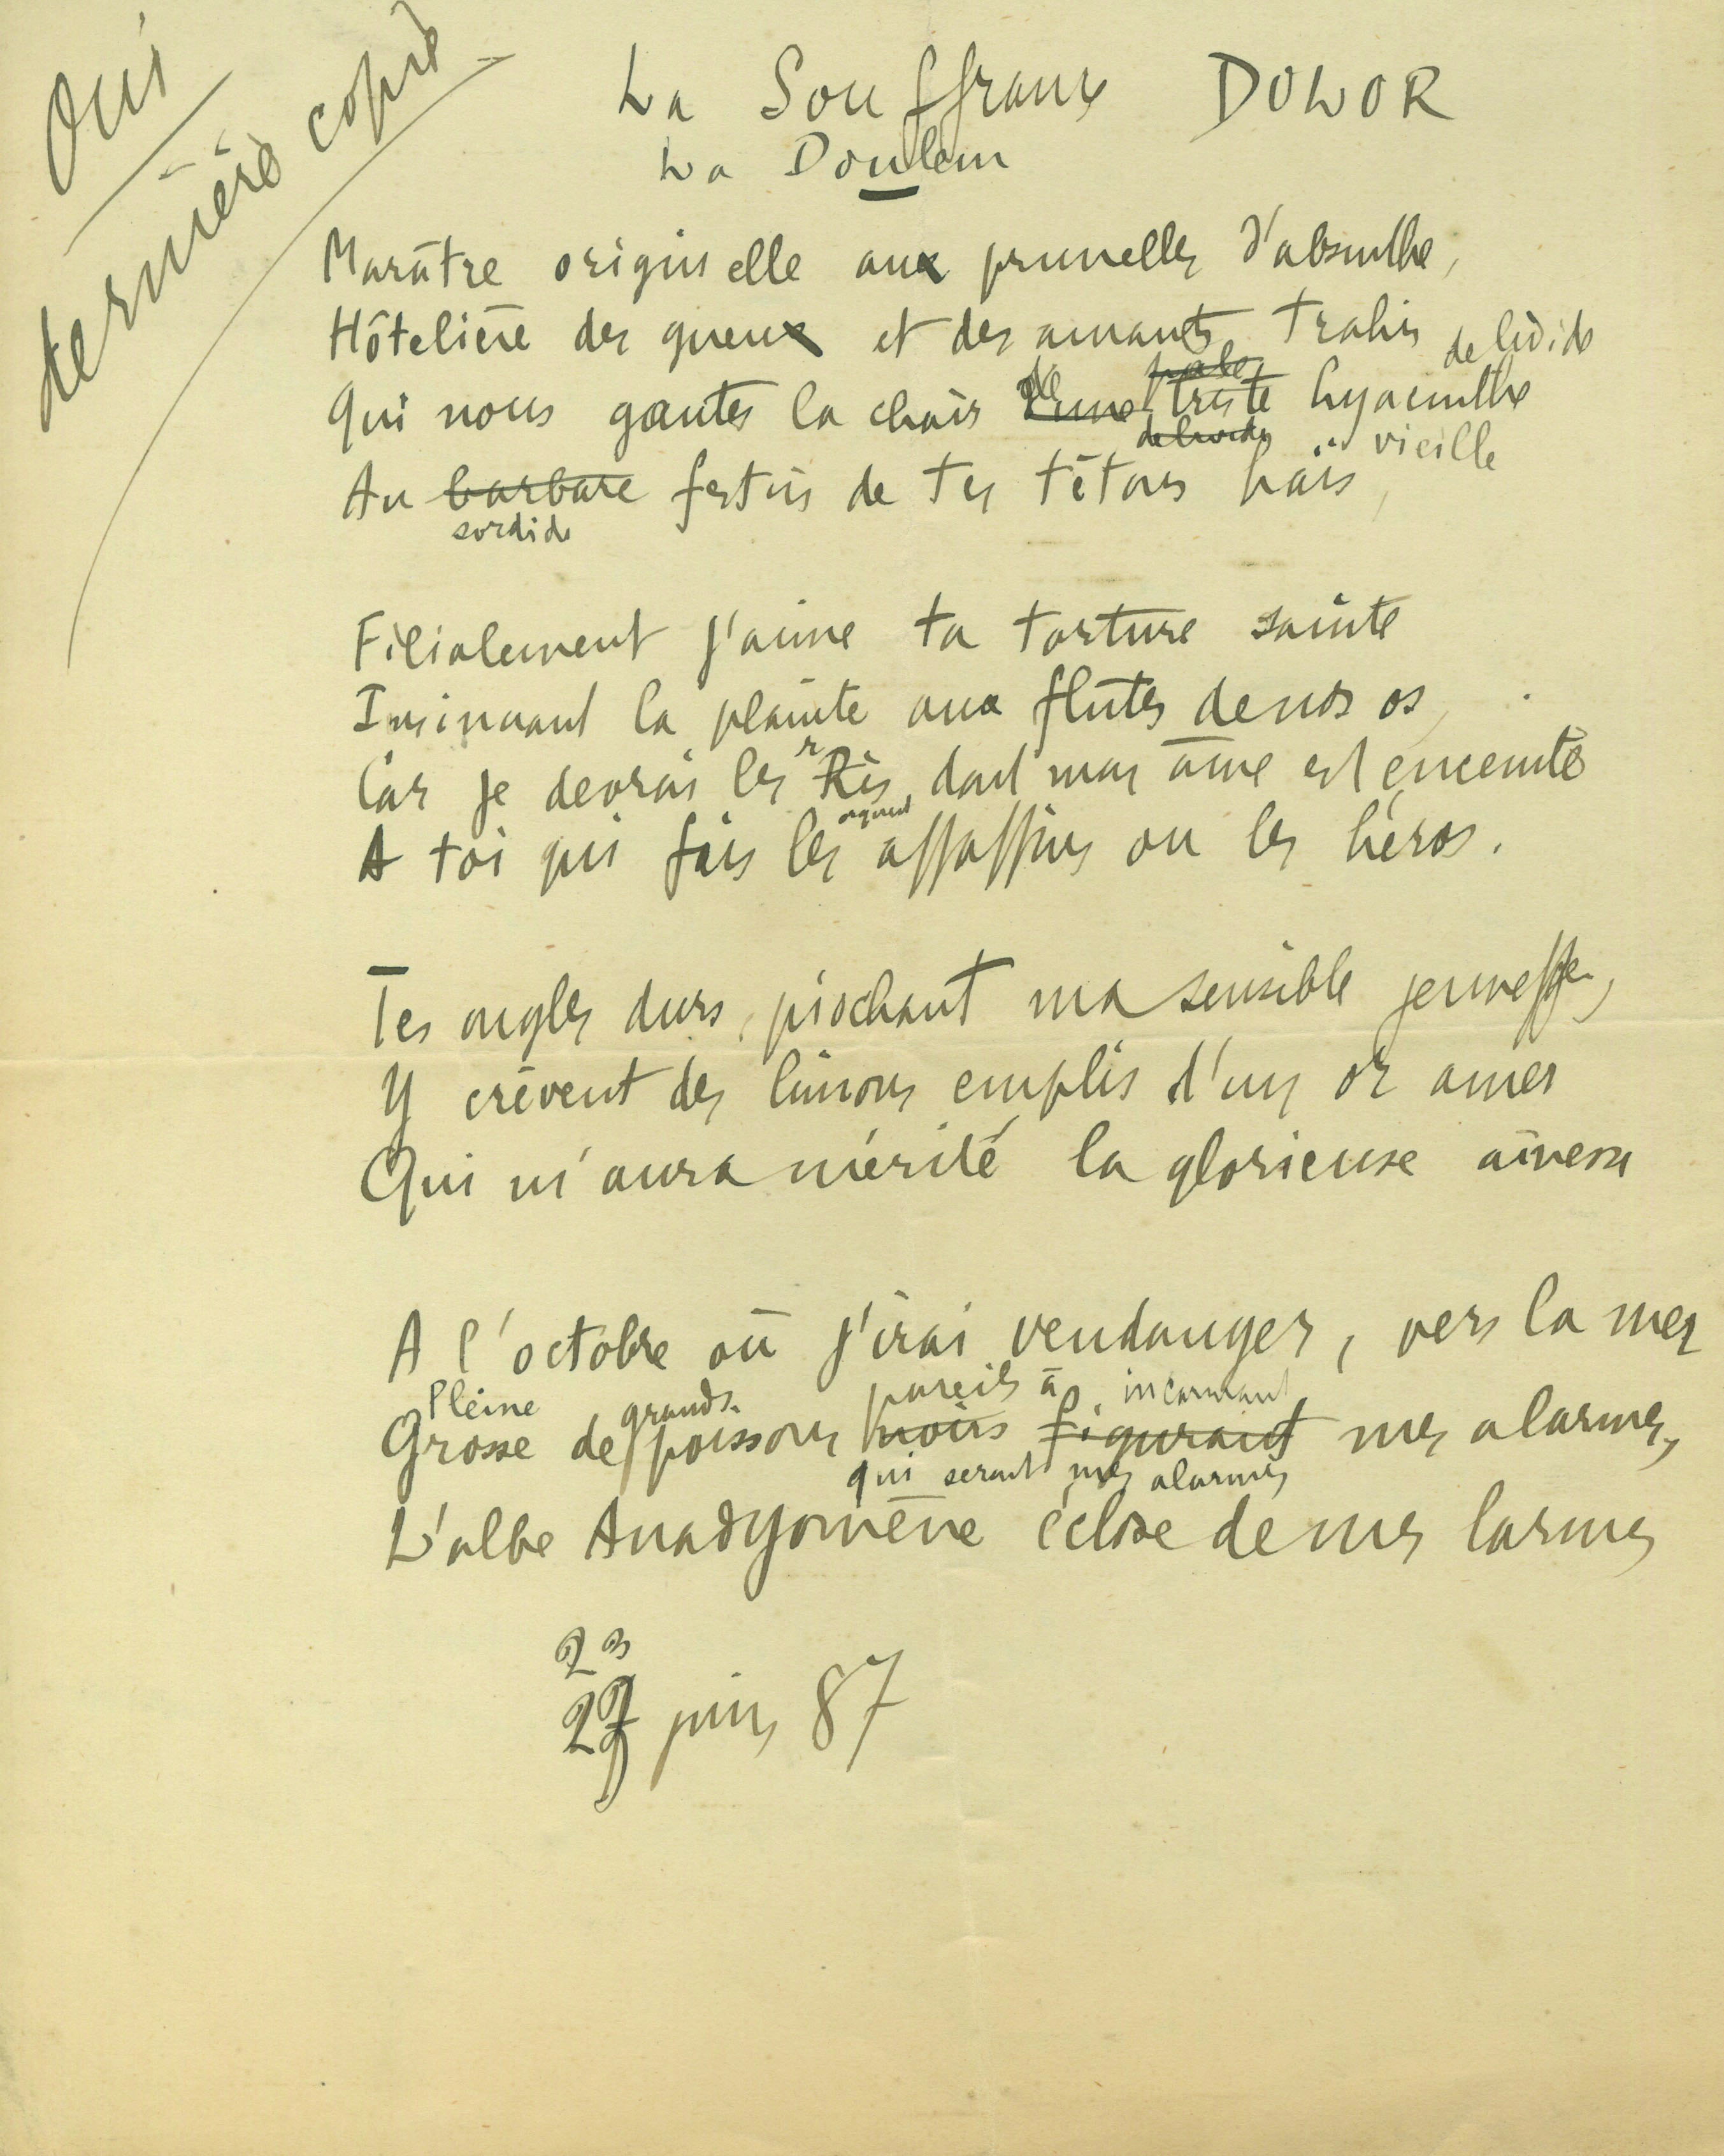 Oui
dernière copie
La Souffrance DOLOR
La Douleur
Marâtre originelle aux prunelles d'absinthe,
Hôtelière des gueux et des amants trahis
de livide
pale
Qui nous gantes la chair d'une triste hyacinthe
de livide vieille
Au barbare festin de tes tétons haïs,
sordide
Filialement j'aime ta torture sainte
Insinuant la plainte aux flûtes de nos os,
Car je devrai les Ris dont mon âme est enceinte
A toi qui fais les assassins ou les héros.
Tes ongles durs, piochant ma sensible jeunesse,
Y crèvent des limons emplis d'un or amer
Qui m'aura mérité la glorieuse aînesse
A l'octobre où j'irai vendanger, vers la mer
Pleine grands pareils à incarnant
Grosse de poissons noirs figurant mes alarmes,
qui seront mes alarmes
L'albe Anadyomène éclose de mes larmes
23
27 juin 87